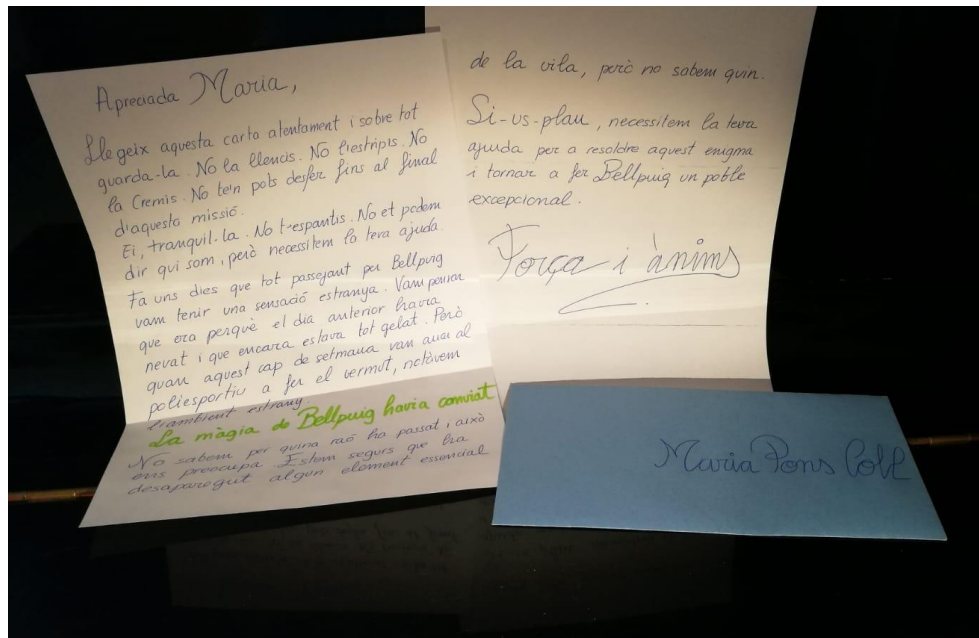 Apreciada Maria,
Llegeix aquesta carta atentament i sobre tot
guarda-la. No la llencis. No l'estripis. No
la Cremis. No te'n pots desfer fins al final
d'aquesta missió.
Ei, tranquil·la. No t'espantis. No et podem
dir qui som, però necessitem la teva ajuda.
Fa uns dies que tot passejant per Bellpuig
vam tenir una sensació estranya. Vam pensar
que era perquè el dia anterior havia
nevat i que encara estava tot gelat. Però
quan aquest cap de setmana vam anar al
poliesportiu a fer el vermut, notàvem
l'ambient estrany.
La màgia de Bellpuig havia canviat
No sabem per quina raó ha passat i això
ens preocupa. Estem segurs que ha
desaparegut algun element essencial
de la vila, però no sabem quin.
Si-us-plau, necessitem la teva
ajuda per a resoldre aquest enigma
i tornar a fer Bellpuig un poble
excepcional.
Força i ànims
Maria Pons Coll